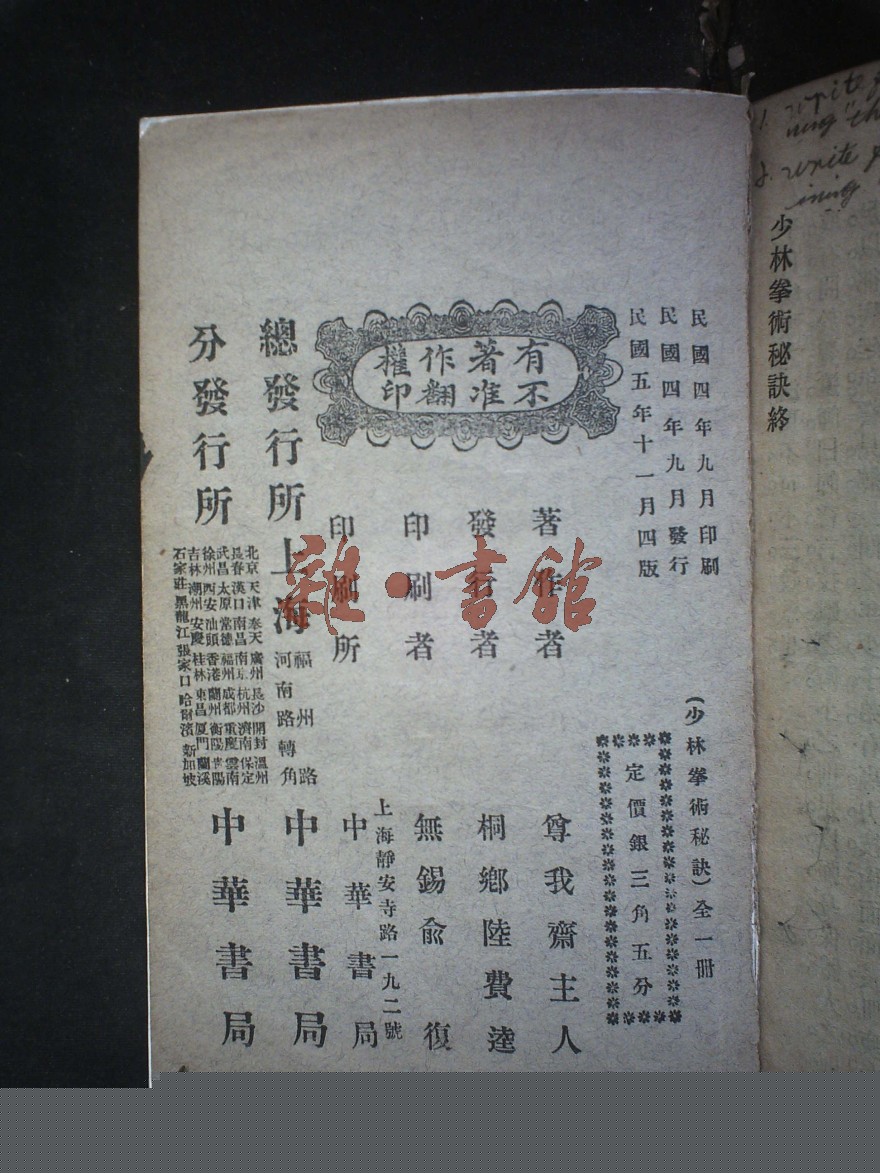 1. write
ning "th
2. write
ining
少林拳術秘訣終
民國四年九月印刷
民國四年九月發行
民國五年十一月四版
(少林拳術秘訣)全一冊
定價銀三角五分
有著作權
不准翻印
著作者 尊我齋主人
發行者 桐鄉陸費逵
印刷者 無錫俞復
上海靜安寺路一九二號
印刷所 中華書局
總發行所 上海 福州路河南路轉角 中華書局
分發行所 中華書局
北京 天津 奉天 廣州 長沙 開封 溫州
長春 漢口 南昌 南京 杭州 濟南 保定
武昌 太原 常德 福州 成都 重慶 雲南
徐州 西安 汕頭 香港 蘭州 衡陽 貴陽
吉林 潮州 安慶 桂林 東昌 厦門 蘭溪
石家莊 黑龍江 張家口 哈爾濱 新加坡
雜·書館